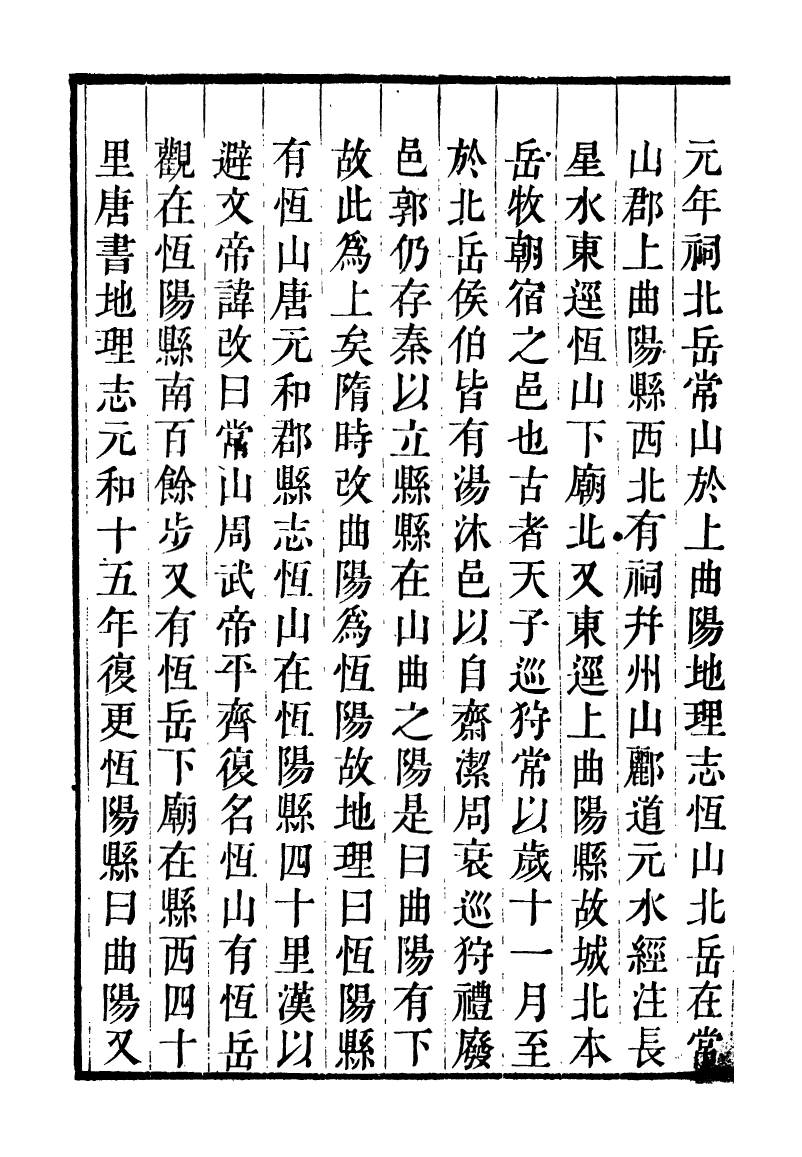 元年祠北岳常山於上曲陽地理志恆山北岳在常
山郡上曲陽縣西北有祠并州山酈道元水經注長
星水東逕恆山下廟北又東逕上曲陽縣故城北本
岳牧朝宿之邑也古者天子巡狩常以歲十一月至
於北岳侯伯皆有湯沐邑以自齋潔周衰巡狩禮廢
邑郭仍存秦以立縣縣在山曲之陽是曰曲陽有下
故此爲上矣隋時改曲陽爲恆陽故地理曰恆陽縣
有恆山唐元和郡縣志恆山在恆陽縣四十里漢以
避文帝諱改曰常山周武帝平齊復名恆山有恆岳
觀在恆陽縣南百餘步又有恆岳下廟在縣西四十
里唐書地理志元和十五年復更恆陽縣曰曲陽又